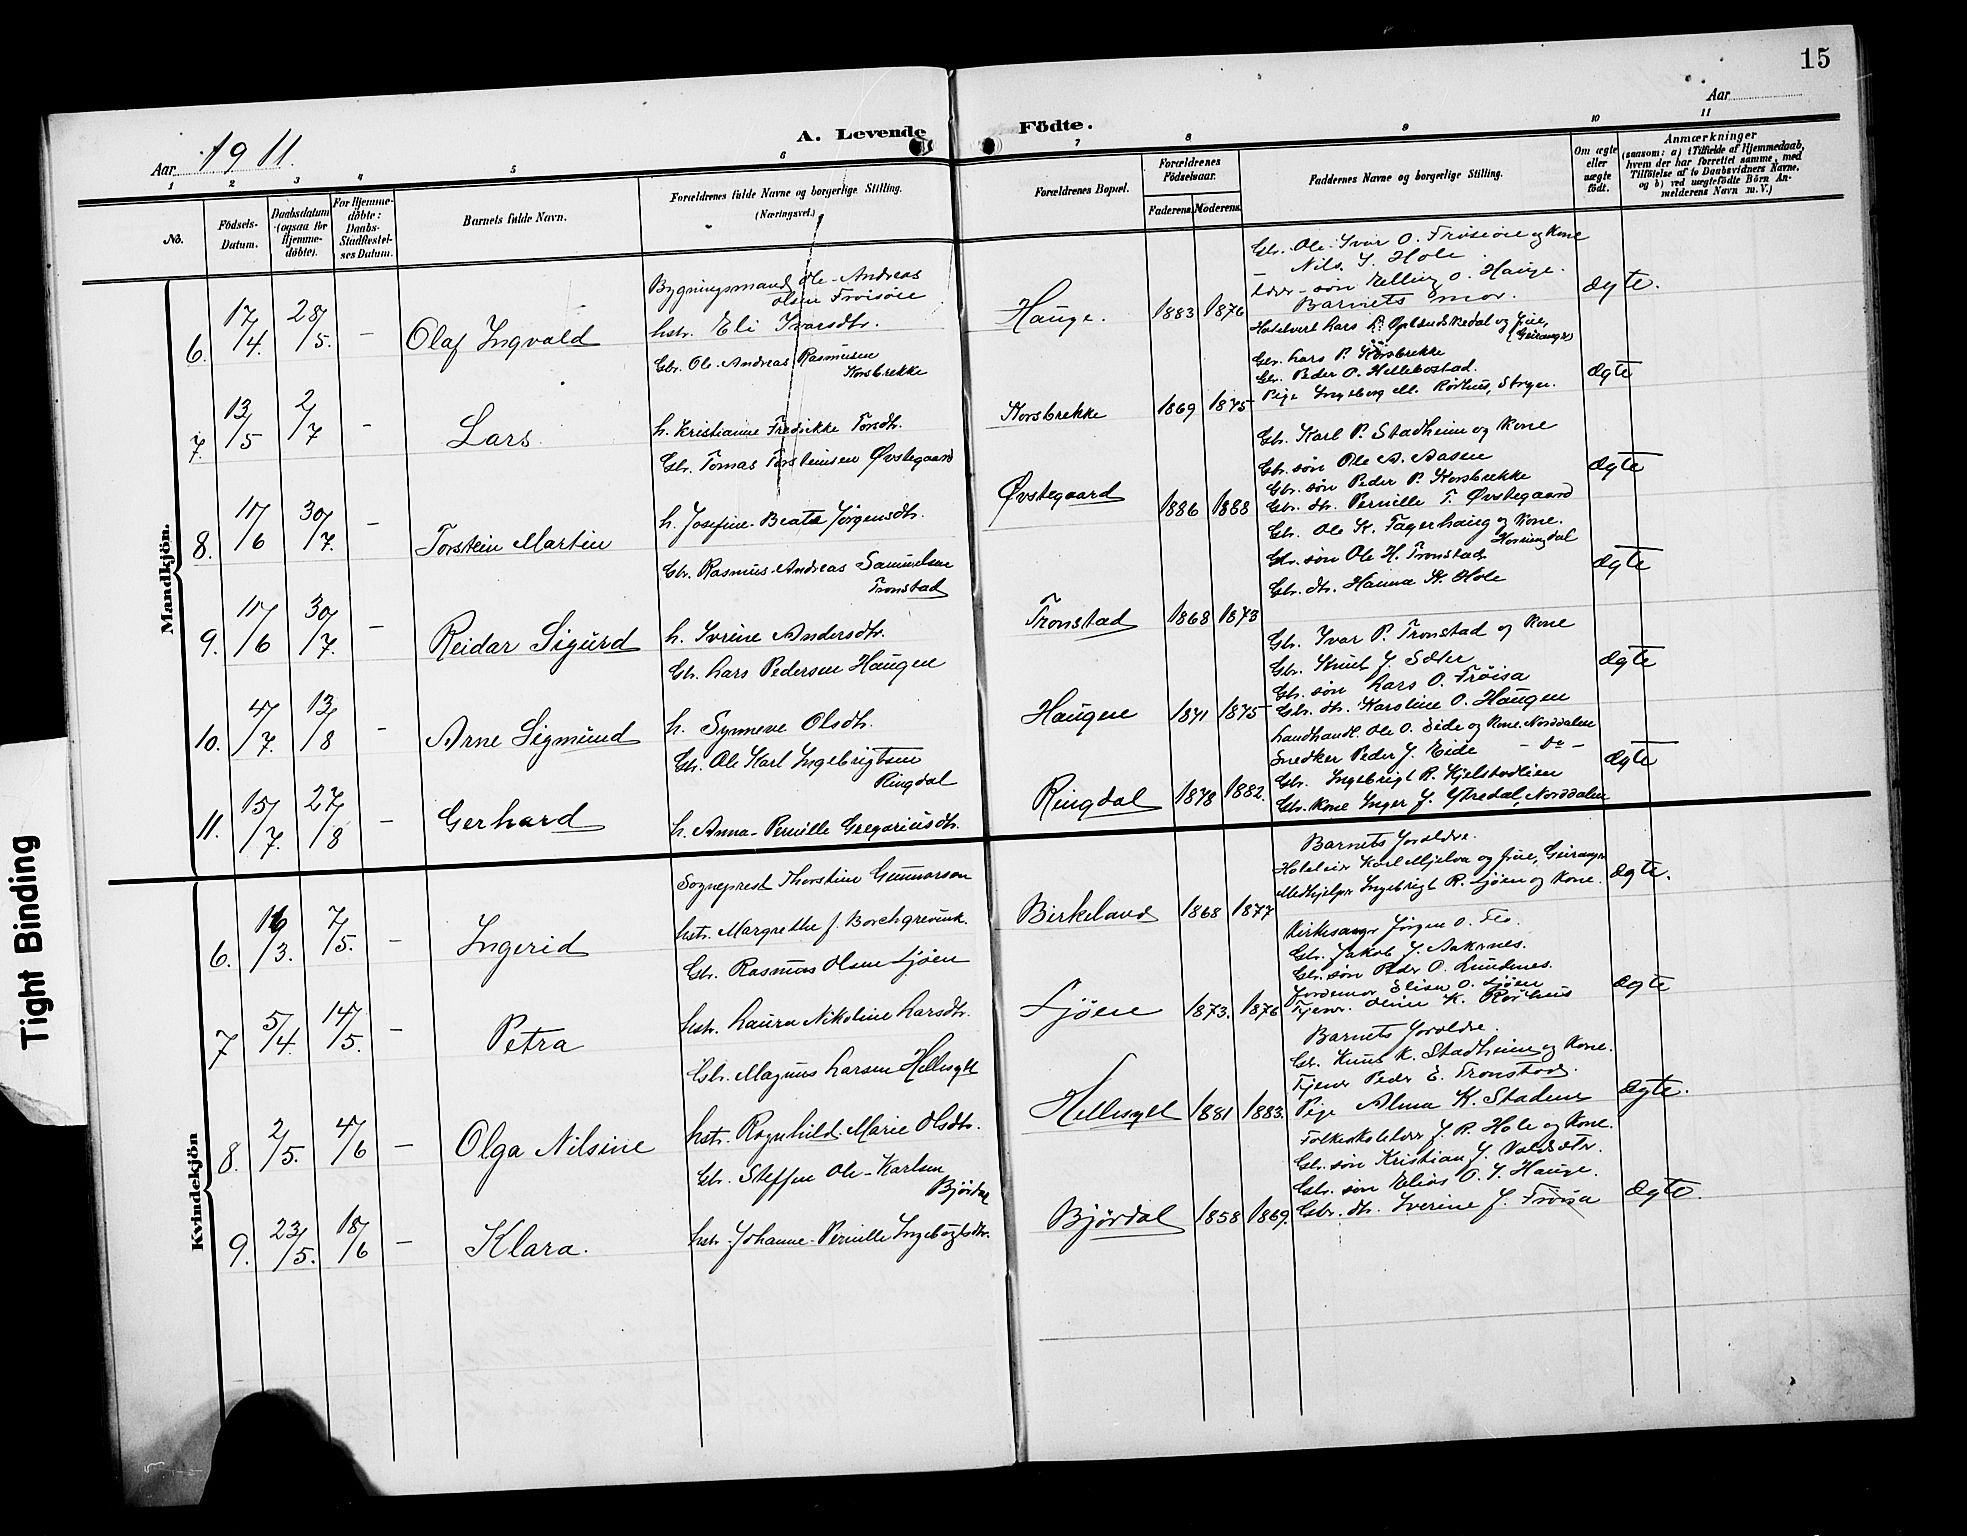 15
Aar 1911.
A. Levende Födte.
Aar
1 2 3 4 5 6 7 8 9 10 11
No.
Födsels-Datum.
Daabsdatum (ogsaa for Hjemme-döbte).
For Hjemme-döbte: Daabs-Stadfæstel-ses Datum.
Barnets fulde Navn.
Forældrenes fulde Navne og borgerlige Stilling.
(Næringsvei.)
Forældrenes Bopæl.
Forældrenes Födselsaar.
Faderens. Moderens.
Faddernes Navne og borgerlige Stilling.
Om ægte eller uægte födt.
Anmærkninger
(saasom: a) i Tilfælde af Hjemmedaab,
hvem der har forrettet samme, med
Tilföielse af to Daabsvidners Navne,
og b) ved uægtefödte Börn An-
melderens Navn m. V.)
Mandkjön.
6. 17/4. 28/5. – Olaf Ingvald
Bygningsmand Ole Andreas
Olsen Frøisøie
hstr. Eli Ivarsdtr.
Hauge. 1883 1876
Gbr. Ole Ivar O. Frøisøie og Kone
Nils J. Hole
son Elling O. Hauge.
Barnets mor.
ægte.
7. 13/5 2/7 – Lars
Gbr. Ole Andreas Rasmusen
Korsbrekke
h. Kristianne Fredrikke Torsdtr.
Korsbrekke 1869 1875
Hotelvert Lars L. Oplandskedal og frue,
(Geiranger)
Gbr. Lars P. Korsbrekke
Gbr. Peder O. Hellebostad.
Pige Ingeborg M. Rørhus, Stryn.
ægte
8. 11/6 30/7. – Torstein Martin
Gbr. Tomas Torsteinsen Øvstegaard
h. Josefine Beate Jørgensdtr.
Øvstegaard 1886 1888
Gbr. Karl P. Stadheim og Kone
Gbr. søn Ole A. Aasen
Gbr. søn Peder P. Korsbrekke
Gbr. dtr. Pernille T. Øvstegaard
ægte
9. 11/6 30/7. – Reidar Sigurd
Gbr. Rasmus Andreas Samuelsen
Tronstad
h. Ivrine Andersdtr.
Tronstad 1868 1873
Gbr. Ole K. Fagerhaug og Kone.
Horningdal
Gbr. søn Ole H. Tronstad
Gbr. dtr. Hanna K. Hole
ægte
10. 4/7. 13/8 – Arne Sigmund
Gbr. Lars Pedersen Haugen
h. Synneve Olsdtr.
Haugen 1871 1875
Gbr. Ivar P. Tronstad og Kone
Gbr. Knut J. Sæter
Gbr. søn Lars O. Frøisa
Gbr. dtr. Karoline O. Haugen
ægte
11. 15/7. 27/8 – Gerhard
Gbr. Ole Karl Ingebrigtsen
Ringdal
h. Anna Pernille Gregoriusdtr.
Ringdal 1878 1882.
Landhandl. Ole O. Eide og Kone. Norddalen
Snedker Peder J. Eide – do –
Gbr. Ingebrigt R. Kjelstadlien
Gbr. Kone Inger J. Ytredal, Norddalen
ægte
Kvindekjön
6. 16/3. 7/5. – Ingerid
Sogneprest Thorstein Gunnarson
hstr. Margrethe f. Borchgrevink.
Birkeland 1868 1877
Barnets foreldre.
Hoteleier Karl Mjelva og frue, Geiranger
Medhjelper Ingebrigt R. Ljøen og Kone.
ægte.
7 5/4. 14/5. – Petra
Gbr. Rasmus Olsen Ljøen
hstr. Laura Nikoline Larsdtr.
Ljøen 1873. 1876
Kirkesanger Jørgen O. Tes
Gbr. Jakob J. Aakernes.
Gbr. søn Peder O. Lundenes.
Jordemor Elisa O. Ljøen
Tjener. Oline K. Rørhus
ægte
8. 2/5. 4/6 – Olga Nilsine
Gbr. Magnus Larsen Hellesylt
hstr. Ragnhild Marie Olsdtr.
Hellesylt 1881 1883.
Barnets foreldre.
Gbr. Knut K. Stadheim og Kone.
Tjener Peder E. Tronstad.
Pige Alma K. Stadem
ægte.
9. 23/5. 18/6 – Klara.
Gbr. Steffen Ole Karlsen
Bjørdal
hstr. Johanne Pernille Ingebrigtsdtr.
Bjørdal 1858 1869.
Folkeskolelærer J. P. Hole og Kone.
Gbr. søn Kristian J.
Gbr. søn Elias O. J. Hauge.
Gbr. dtr. Iverine J. Frøisa
ægte.
Tight Binding